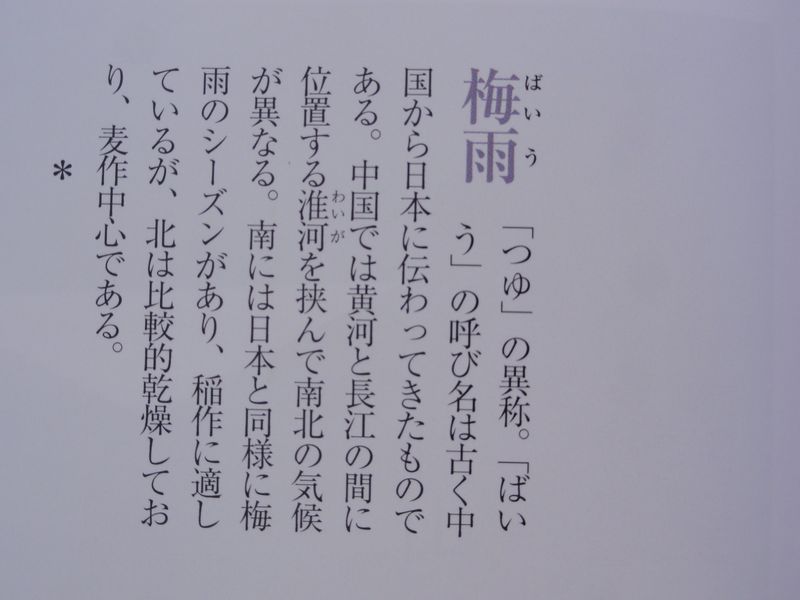 梅雨
ばいう
「つゆ」の異称。「ばい
う」の呼び名は古く中
国から日本に伝わってきたもので
ある。中国では黄河と長江の間に
位置する淮河を挟んで南北の気候
わいが
が異なる。南には日本と同様に梅
雨のシーズンがあり、稲作に適し
ているが、北は比較的乾燥してお
り、麦作中心である。
＊